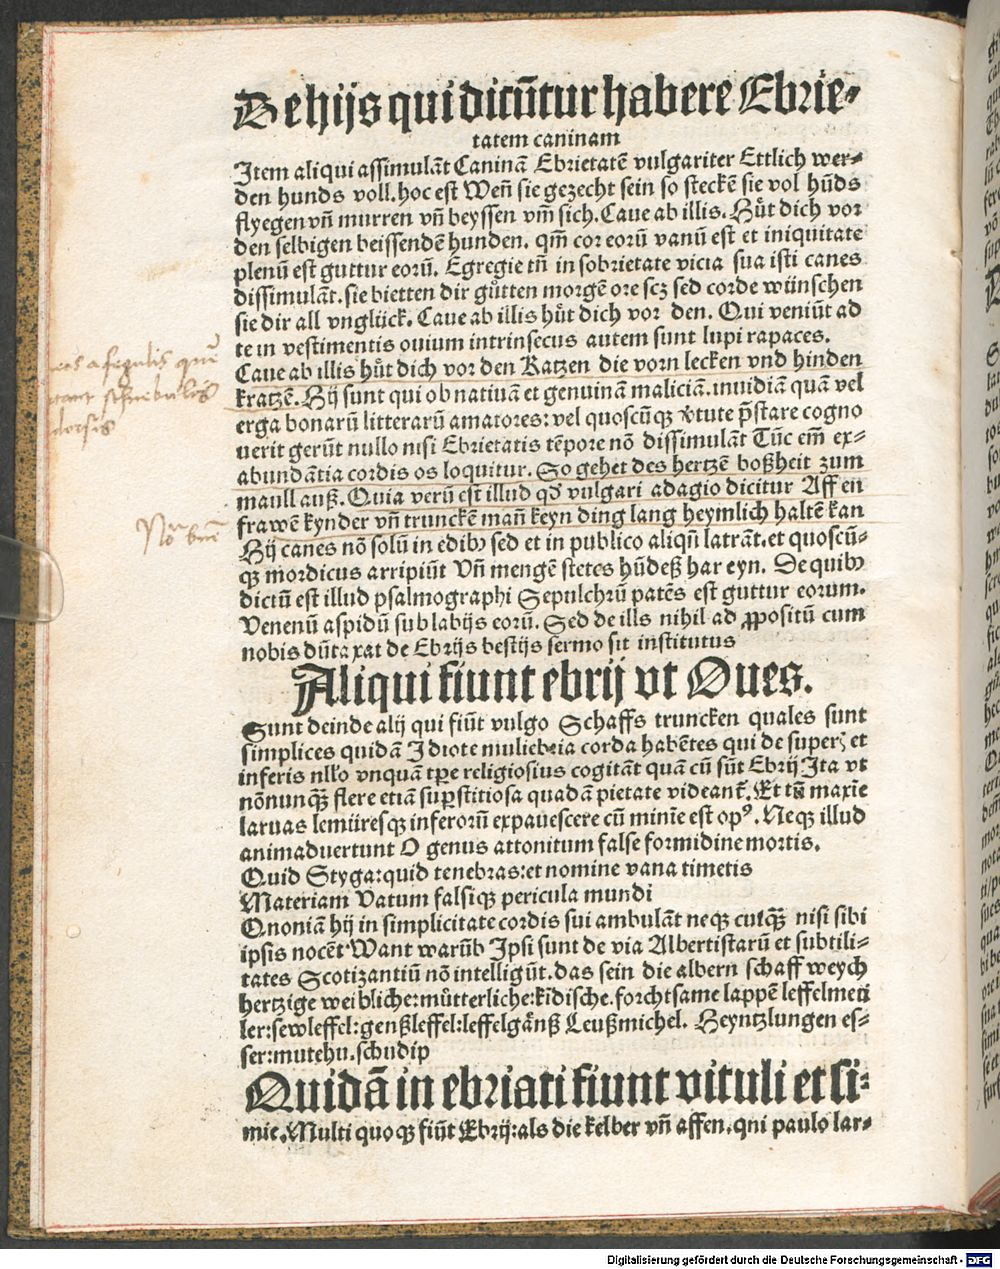 De hijs qui dicūtur habere Ebrie-
tatem caninam
Item aliqui assimulāt Caninā Ebrietatē vulgariter Ettlich wer-
den hunds voll. hoc est Weñ sie gezecht sein so steckē sie vol hūds
flyegen vñ murren vñ beyssen vm̄ sich. Caue ab illis. Hůt dich vor
den selbigen beissendē hunden. qm̄ cor eorū vanū est et iniquitate
plenū est guttur eorū. Egregie tñ in sobrietate vicia sua isti canes
dissimulāt. sie bietten dir gůtten morgē ore scꝫ sed corde wünschen
sie dir all vnglück. Caue ab illis hůt dich vor den. Qui veniūt ad
te in vestimentis ouium intrinsecus autem sunt lupi rapaces.
Caue ab illis hůt dich vor den Katzen die vorn lecken vnd hinden
kratzē. Hij sunt qui ob natiuā et genuinā maliciā. inuidiā quā vel
erga bonarū litterarū amatores: vel quoscūqꝫ v̾tute p̄stare cogno
uerit gerūt nullo nisi Ebrietatis tēpore nō dissimulāt Tūc em̄ ex-
abundātia cordis os loquitur. So gehet des hertzē boßheit zum
maull auß. Quia verū est illud qđ vulgari adagio dicitur Affen
frawē kynder vñ trunckē mañ keyn ding lang heymlich haltē kan
Hij canes nō solū in edibꝫ sed et in publico aliqñ latrāt. et quoscū-
qꝫ mordicus arripiūt Vñ mengē stetes hūdeß har eyn. De quibꝫ
dictū est illud psalmographi Sepulchrū patēs est guttur eorum.
Venenū aspidū sub labijs eorū. Sed de ills nihil ad ꝓpositū cum
nobis dūtaxat de Ebrijs bestijs sermo sit institutus
Aliqui fiunt ebrij vt Oues.
Sunt deinde alij qui fiūt vulgo Schaffs truncken quales sunt
simplices quidā Idiote muliebria corda habētes qui de superꝭ et
inferis nll'o vnquā tꝑe religiosius cogitāt quā cū sūt Ebrij Ita vt
nōnunqꝫ flere etiā suꝑstitiosa quadā pietate videant᷑. Et tū maxīe
laruas lemüresqꝫ inferorū expauescere cū minīe est opꝰ. Neqꝫ illud
animaduertunt O genus attonitum false formidine mortis.
Quid Styga: quid tenebras: et nomine vana timetis
Materiam Vatum falsiqꝫ pericula mundi
Qnoniā hij in simplicitate cordis sui ambulāt neqꝫ cuiqꝫ nisi sibi
ipsis nocēt Want warūb Ipsi sunt de via Albertistarū et subtili-
tates Scotizantiū nō intelligūt. das sein die albern schaff weych
hertzige weibliche: můtterliche: kīdische. forchtsame lappē leffelmeti
ler: sewleffel: genßleffel: leffelgånß Leußmichel. Heyntzlungen es-
ser: mutehu. schudip
Quidā in ebriati fiunt vituli et si-
mie. Multi quoqꝫ fiūt Ebrij: als die kelber vñ affen. qni paulo lar-
Digitalisierung gefördert durch die Deutsche Forschungsgemeinschaft - DFG